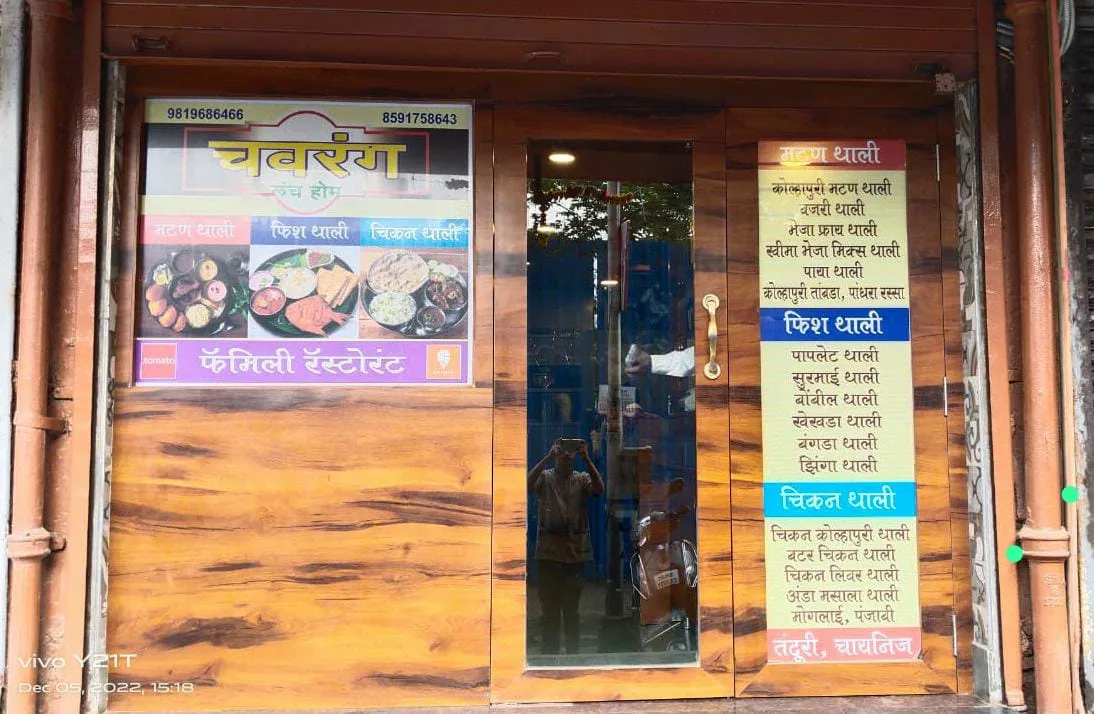 9819686466 8591758643
चवरंग
लंच होम
मटण थाली फिश थाली चिकन थाली
zomato फॅमिली रॅस्टोरंट
मटण थाली
कोल्हापुरी मटण थाली
वजरी थाली
भेजा फ्राय थाली
खीमा भेजा मिक्स थाली
पाया थाली
कोल्हापुरी तांबडा, पांधरा रस्सा
फिश थाली
पापलेट थाली
सुरमाई थाली
बोंबील थाली
खेखडा थाली
बंगडा थाली
झिंगा थाली
चिकन थाली
चिकन कोल्हापुरी थाली
बटर चिकन थाली
चिकन लिवर थाली
अंडा मसाला थाली
मोगलाई, पंजाबी
तंदूरी, चायनिज
vivo Y21T
Dec 05, 2022, 15:18